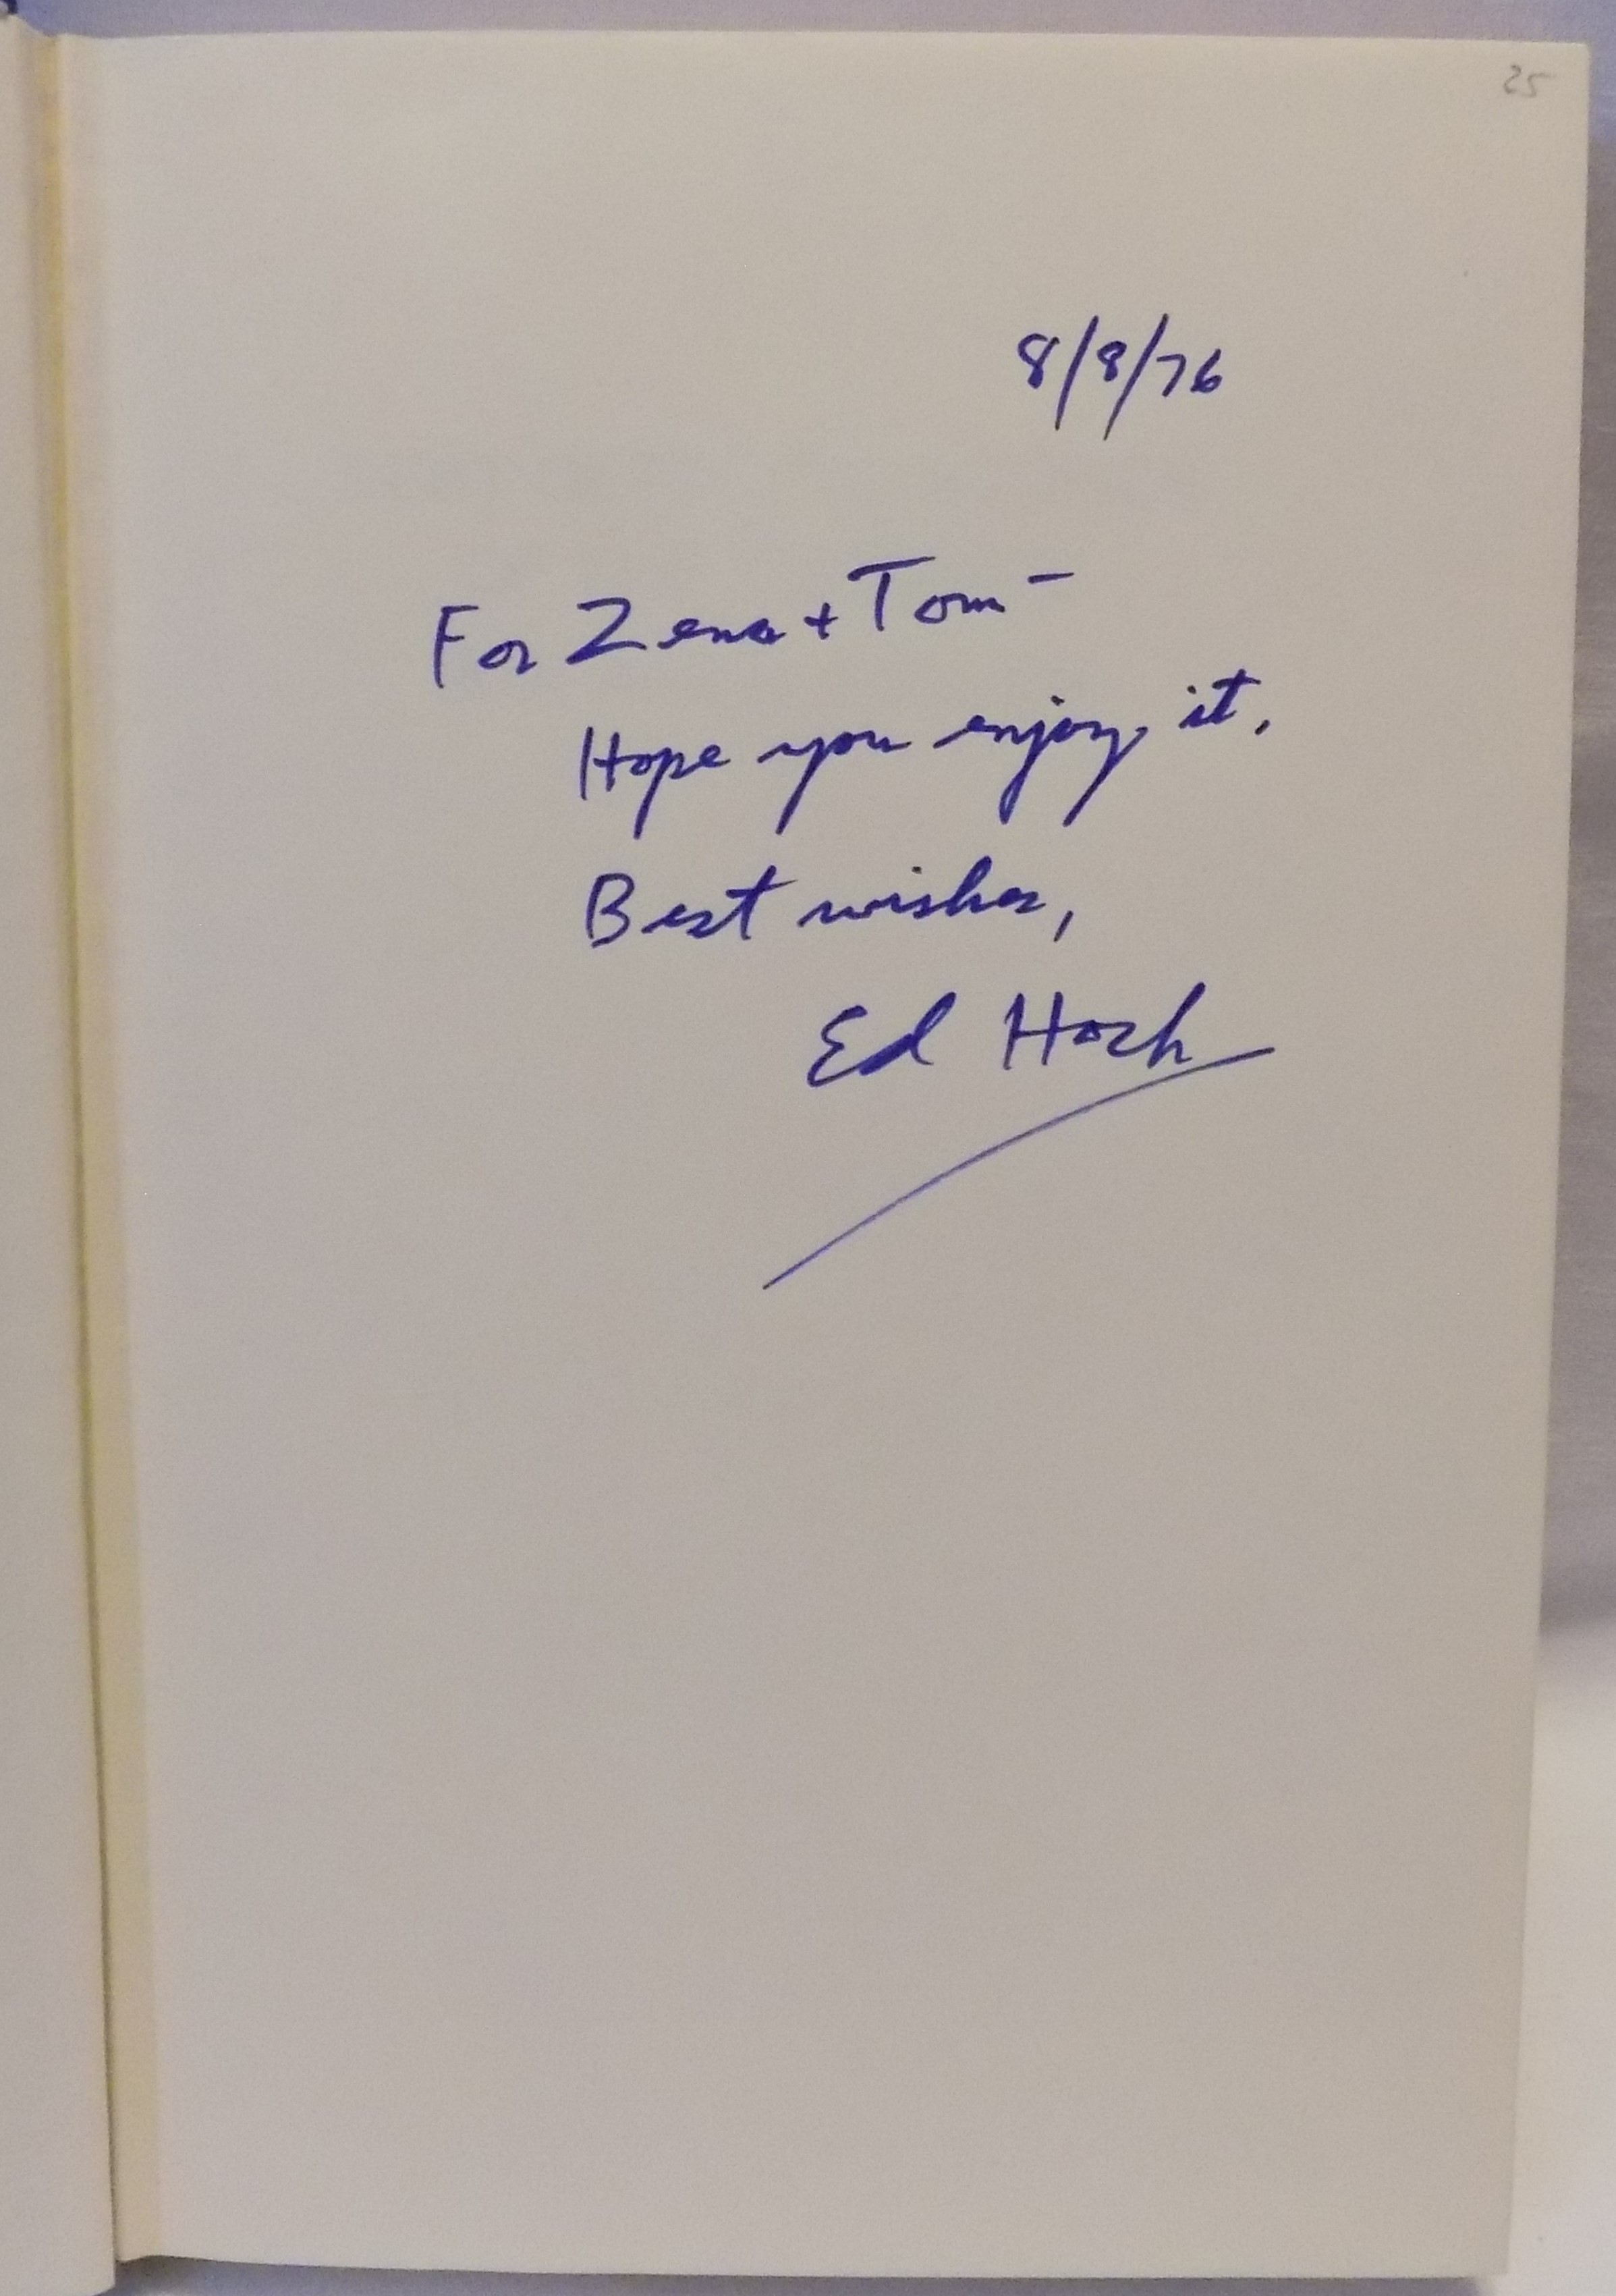 25
8/8/76
For Zena + Tom –
Hope you enjoy it.
Best wishes,
Ed Hoch